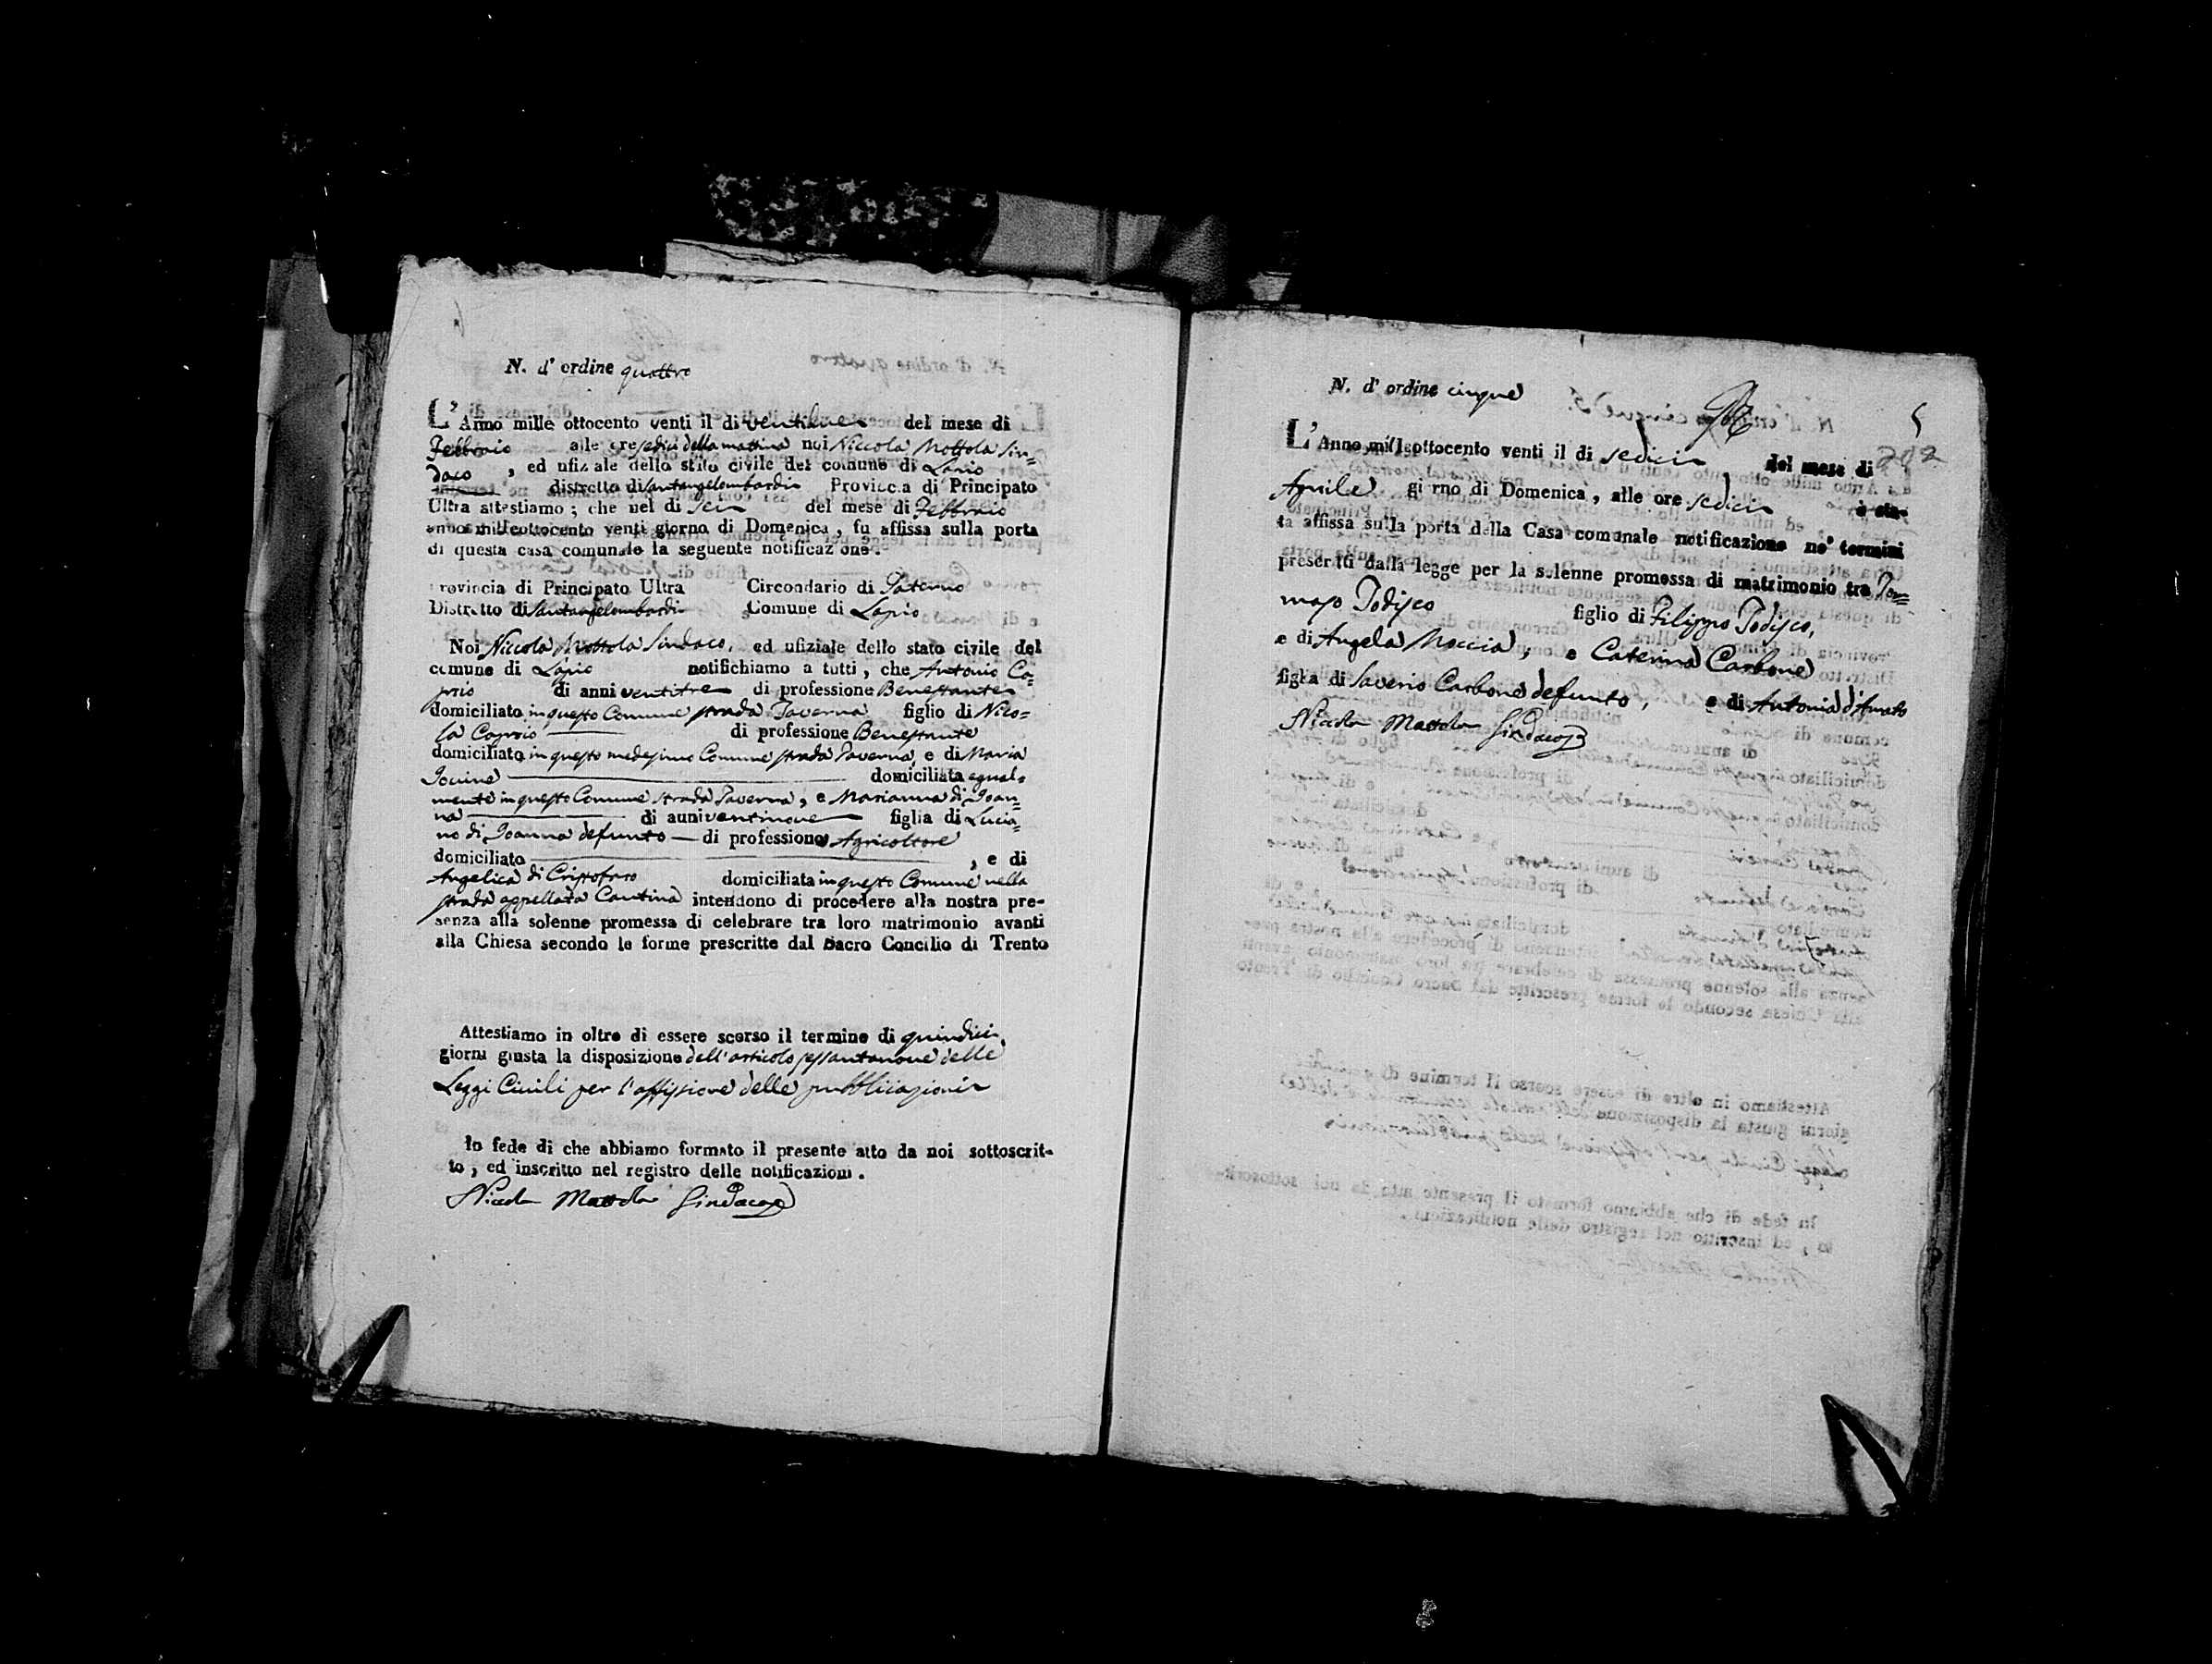 N. d' ordine quattro
L' Anno mille ottocento venti il di ventidue del mese di
Febbraio alle ore sedici della mattina noi Niccola Mottola Sin=
daco, ed ufiziale dello stato civile del comune di Lapio
distretto di Santangelombardi Provincia di Principato
Ultra attestiamo; che nel di sei del mese di Febbraio
anno milleottocento venti giorno di Domenica, fu affissa sulla porta
di questa casa comunale la seguente notificazione.
Provincia di Principato Ultra Circondario di Paterno
Distretto di Santangelombardi Comune di Lapio
Noi Niccola Mottola Sindaco, ed ufiziale dello stato civile del
comune di Lapio notifichiamo a tutti, che Antonio Ca=
prio di anni ventitre di professione Benestante
domiciliato in questo Comune strada Taverna figlio di Nico=
la Caprio di professione Benestante
domiciliato in questo medesimo Comune strada Taverna, e di Maria
Iovine domiciliata egual=
mente in questo Comune strada Taverna, e Marianna di Ioan=
na di anni ventinove figlia di Lucia=
no di Ioanna defunto di professione Agricoltore
domiciliato , e di
Angelica di Cristofaro domiciliata in questo Comune nella
strada appellata Cantina intendono di procedere alla nostra pre-
senza alla solenne promessa di celebrare tra loro matrimonio avanti
alla Chiesa secondo le forme prescritte dal Sacro Concilio di Trento
Attestiamo in oltre di essere scorso il termine di quindici
giorni giusta la disposizione dell'articolo sessantanove delle
Leggi Civili per l'affissione delle pubblicazioni
In fede di che abbiamo formato il presente atto da noi sottoscrit-
to, ed inscritto nel registro delle notificazioni.
Niccola Mottola Sindaco
N. d' ordine cinque
5
202
L' Anno mille ottocento venti il di sedici del mese di
Aprile giorno di Domenica, alle ore sedici è sta-
ta affissa sulla porta della Casa comunale notificazione ne' termini
prescritti dalla legge per la solenne promessa di matrimonio tra Tom=
maso Todisco figlio di Filippo Todisco,
e di Angela Moccia, e Caterina Carbone
figlia di Saverio Carbone defunto, e di Antonia d'Amato
Niccola Mottola Sindaco